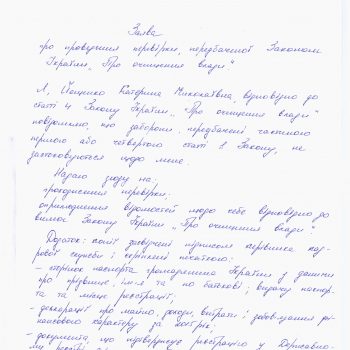 Заява
про проведення перевірки, передбаченої Законом
України „Про очищення влади"
Я, Яценко Катерина Миколаївна, відповідно до
статті 4 Закону України „Про очищення влади"
повідомляю, що заборони, передбачені частиною
першою або четвертою статті 1 Закону, не
застосовуються щодо мене.
Надаю згоду на:
проходження перевірки;
оприлюднення відомостей щодо себе відповідно до
вимог Закону України „Про очищення влади".
Додаток: копії, засвідчені підписом керівника кад-
рової служби і скріплені печаткою:
– сторінок паспорта громадянина України з даними
про прізвище, ім'я та по батькові, видачу паспор-
та та місце реєстрації;
– декларації про майно, доходи, витрати і зобов'язання фі-
нансового характеру за рік;
– документа, що підтверджує реєстрацію у Державно-
му реєстрі